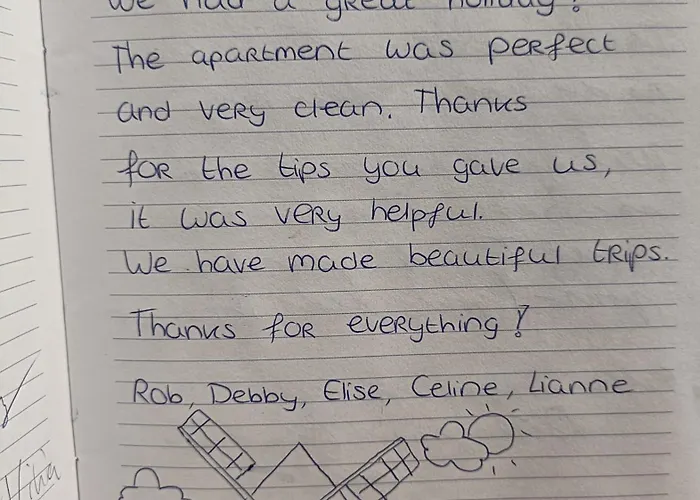 We had a great holiday!
The apartment was perfect
and very clean. Thanks
for the tips you gave us,
it was very helpful.
We have made beautiful trips.
Thanks for everything!
Rob, Debby, Elise, Celine, Lianne